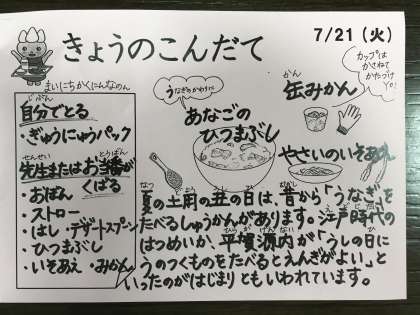 7/21（火）
きょうのこんだて
まいにちかくにんなのん
じぶん
自分でとる
・ぎゅうにゅうパック
せんせい とうばん
先生またはお当番が
くばる
・おぼん
・ストロー
・はし・デザートスプーン
・ひつまぶし
・いそあえ・みかん
うなぎのかわりに
あなごの
ひつまぶし
かん
缶みかん
カップは
かさねて
かたづけ
Yo!
やさいのいそあえ
なつ
夏の土用の丑の日は、昔から「うなぎ」を
たべるしゅうかんがあります。江戸時代の
はつめいか、平賀源内が「うしの日に
うのつくものをたべるとえんぎがよい」と
いったのがはじまりともいわれています。